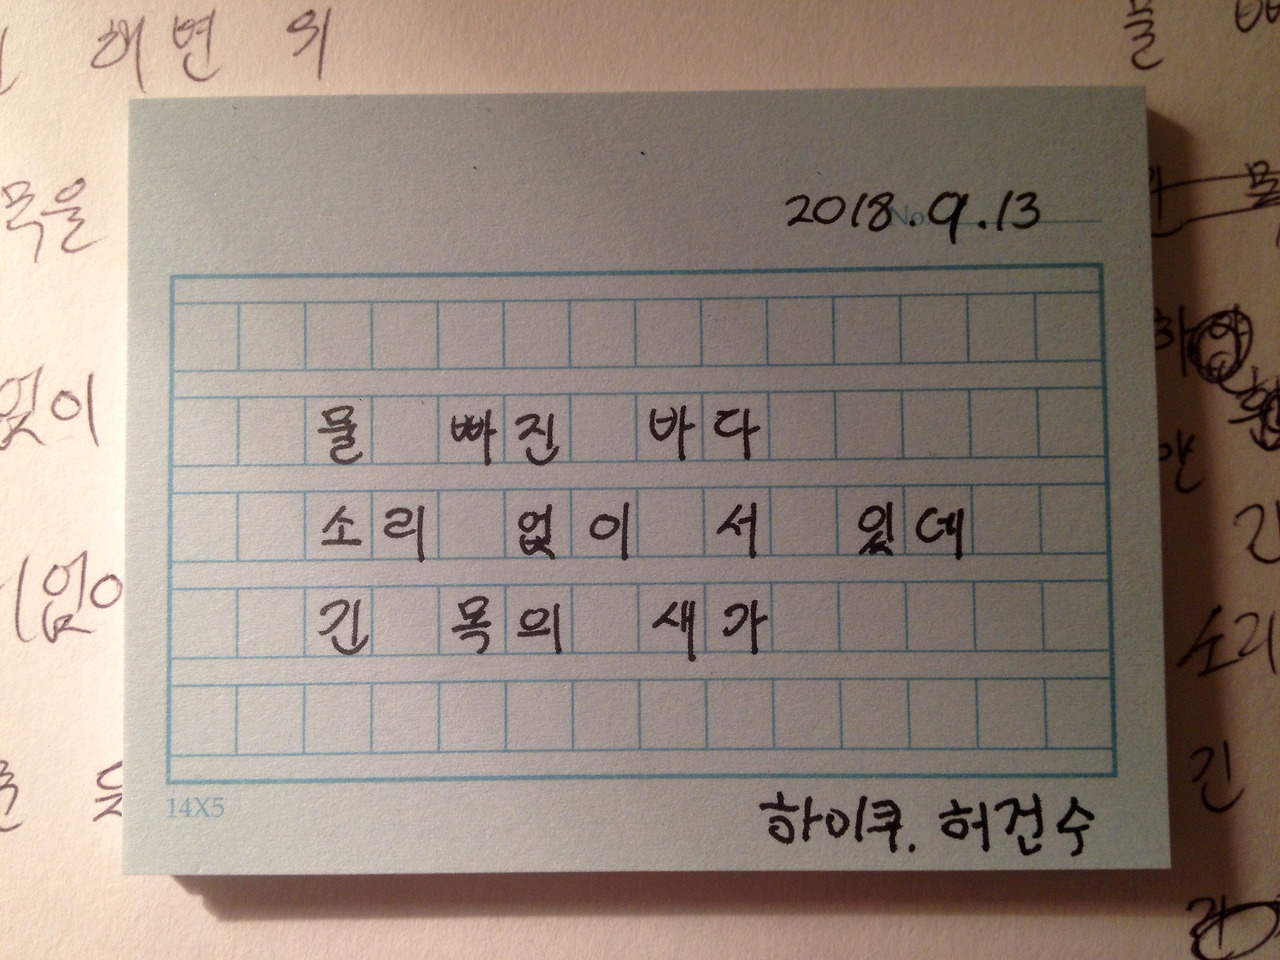 해변 위
를
목을
2018.9.13
No.
물 빠진 바다
소리 없이 서 있네
긴 목의 새가
없이
없이
소리
긴
14X5
하이쿠. 허건수